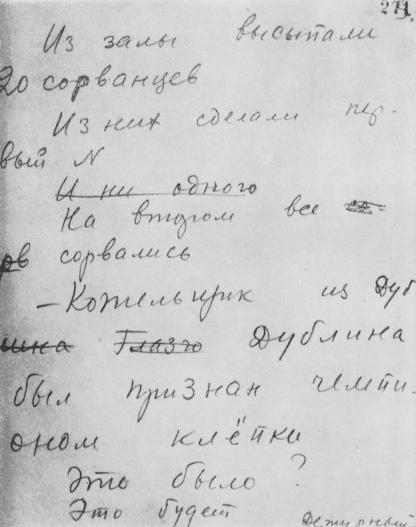 271
Из залы высыпали
20 сорванцев
Из них сделали пер-
вый N
И ни одного
На втором все со-
рв сорвались
— Котельщик из Дуб
лина Глазго Дублина
был признан чемпи-
оном клёпки
Это было?
Это будет
Дежурный